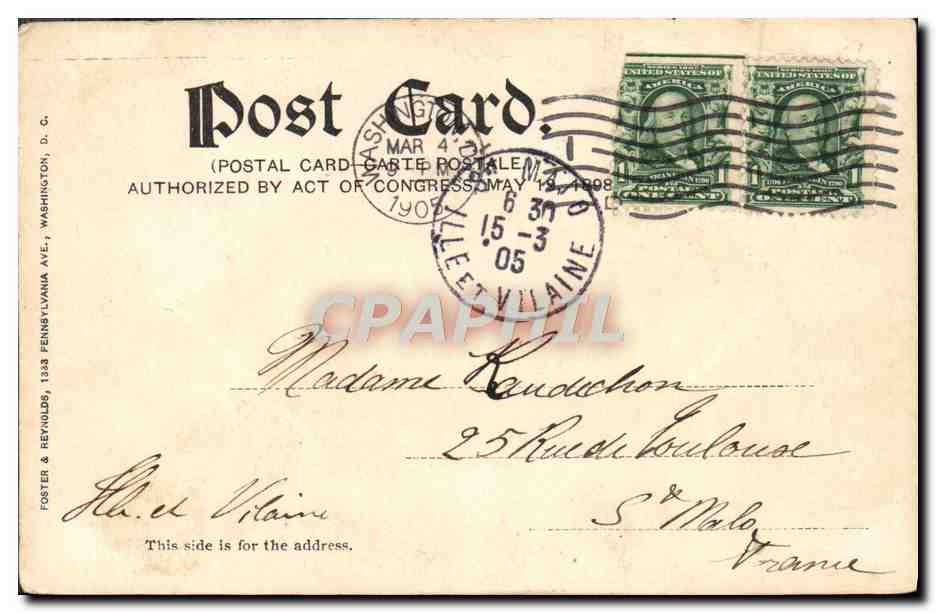 Post Card.
(POSTAL CARD—CARTE POSTALE)
AUTHORIZED BY ACT OF CONGRESS, MAY 19, 1898
SERIES 1902
UNITED STATES OF
AMERICA
POSTAGE
ONE CENT
SERIES 1902
UNITED STATES OF
AMERICA
POSTAGE
ONE CENT
WASHINGTON, D.C.
MAR 4
PM
1905
ST MALO
6 30
15 -3
05
ILLE ET VILAINE
FOSTER & REYNOLDS, 1333 PENNSYLVANIA AVE., WASHINGTON, D. C.
CPAPHIL
Madame
25 Rue de Toulouse
St Malo
France
Ille et Vilaine
This side is for the address.